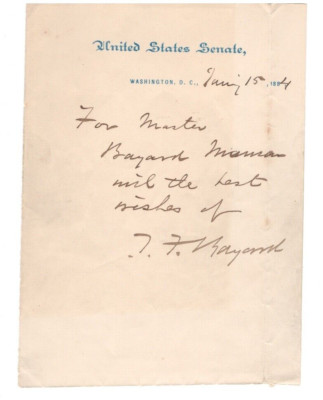 United States Senate,
WASHINGTON, D. C., Jany 15, 1884
For Master
Bayard
with the best
wishes of
T. F. Bayard